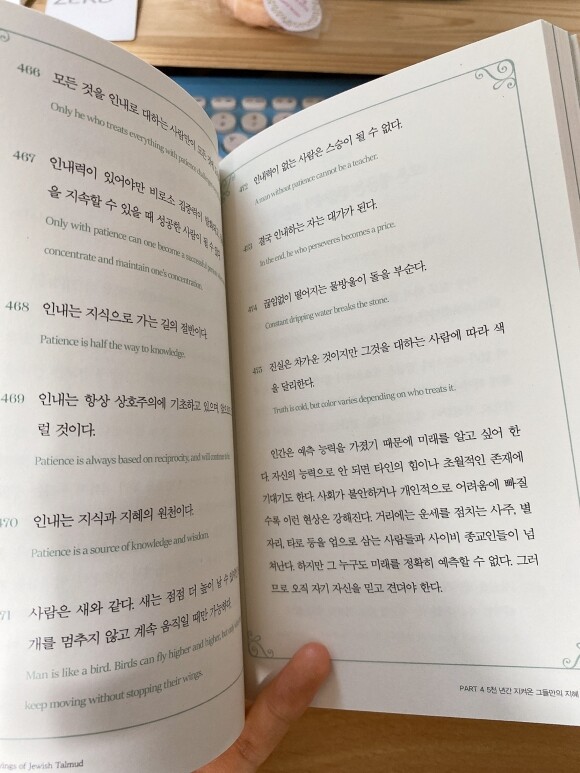 466 모든 것을 인내로 대하는 사람만이 모든
Only he who treats everything with patience
467 인내력이 있어야만 비로소 집중력이
을 지속할 수 있을 때 성공한 사람이 될 수 있다
Only with patience can one become a successful person
concentrate and maintain one's concentration.
468 인내는 지식으로 가는 길의 절반이다.
Patience is half the way to knowledge.
469 인내는 항상 상호주의에 기초하고 있으며
럴 것이다.
Patience is always based on reciprocity, and will continue
470 인내는 지식과 지혜의 원천이다.
Patience is a source of knowledge and wisdom.
71 사람은 새와 같다. 새는 점점 더 높이 날 수
개를 멈추지 않고 계속 움직일 때만 가능하다.
Man is like a bird. Birds can fly higher and higher, but only
keep moving without stopping their wings.
ings of Jewish Talmud
472 인내력이 없는 사람은 스승이 될 수 없다.
A man without patience cannot be a teacher.
473 결국 인내하는 자는 대가가 된다.
In the end, he who perseveres becomes a price.
474 끊임없이 떨어지는 물방울이 돌을 부순다.
Constant dripping water breaks the stone.
475 진실은 차가운 것이지만 그것을 대하는 사람에 따라 색
을 달리한다.
Truth is cold, but color varies depending on who treats it.
인간은 예측 능력을 가졌기 때문에 미래를 알고 싶어 한
다. 자신의 능력으로 안 되면 타인의 힘이나 초월적인 존재에
기대기도 한다. 사회가 불안하거나 개인적으로 어려움에 빠질
수록 이런 현상은 강해진다. 거리에는 운세를 점치는 사주, 별
자리, 타로 등을 업으로 삼는 사람들과 사이비 종교인들이 넘
쳐난다. 하지만 그 누구도 미래를 정확히 예측할 수 없다. 그러
므로 오직 자기 자신을 믿고 견뎌야 한다.
PART 4 5천 년간 지켜온 그들만의 지혜